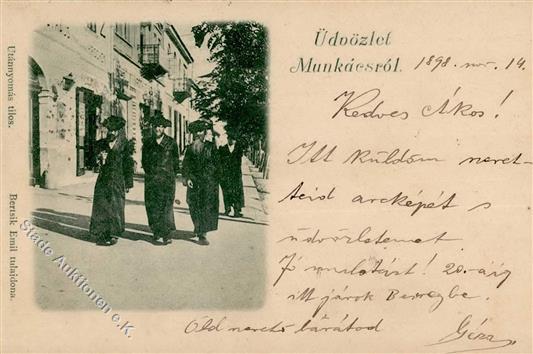 Üdvözlet
Munkácsról. 1898. nov. 14.
Kedves Ákos!
Itt küldöm
arcképét s
üdvözletemet.
Jó mulatást! 20.-áig
itt járok Beregbe.
barátod
Géza
Utánnyomás tilos. Bertsik Emil tulajdona.
Stade Auktionen e.K.